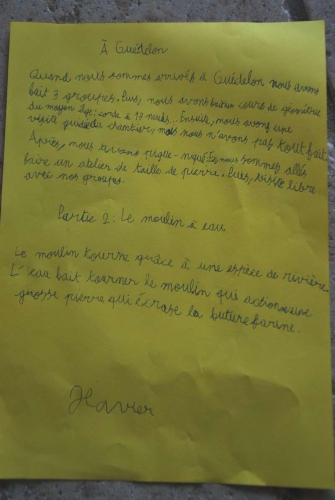 À Guédelon
Quand nous sommes arrivés à Guédelon nous avons
fait 3 groupes. Puis, nous avons fait un cours de géométrie
du moyen âge : corde à 13 nœuds... Ensuite, nous avons une
visité guidée du chantier, mais nous n'avons pas tout fait.
Après, nous avons pique-niqué. Et nous sommes allés
faire un atelier de taille de pierre. Puis, visite libre
avec nos groupes.
Partie 2 : Le moulin à eau
Le moulin tourne grâce à une espèce de rivière.
L'eau fait tourner le moulin qui actionne une
grosse pierre qui écrase la farine.